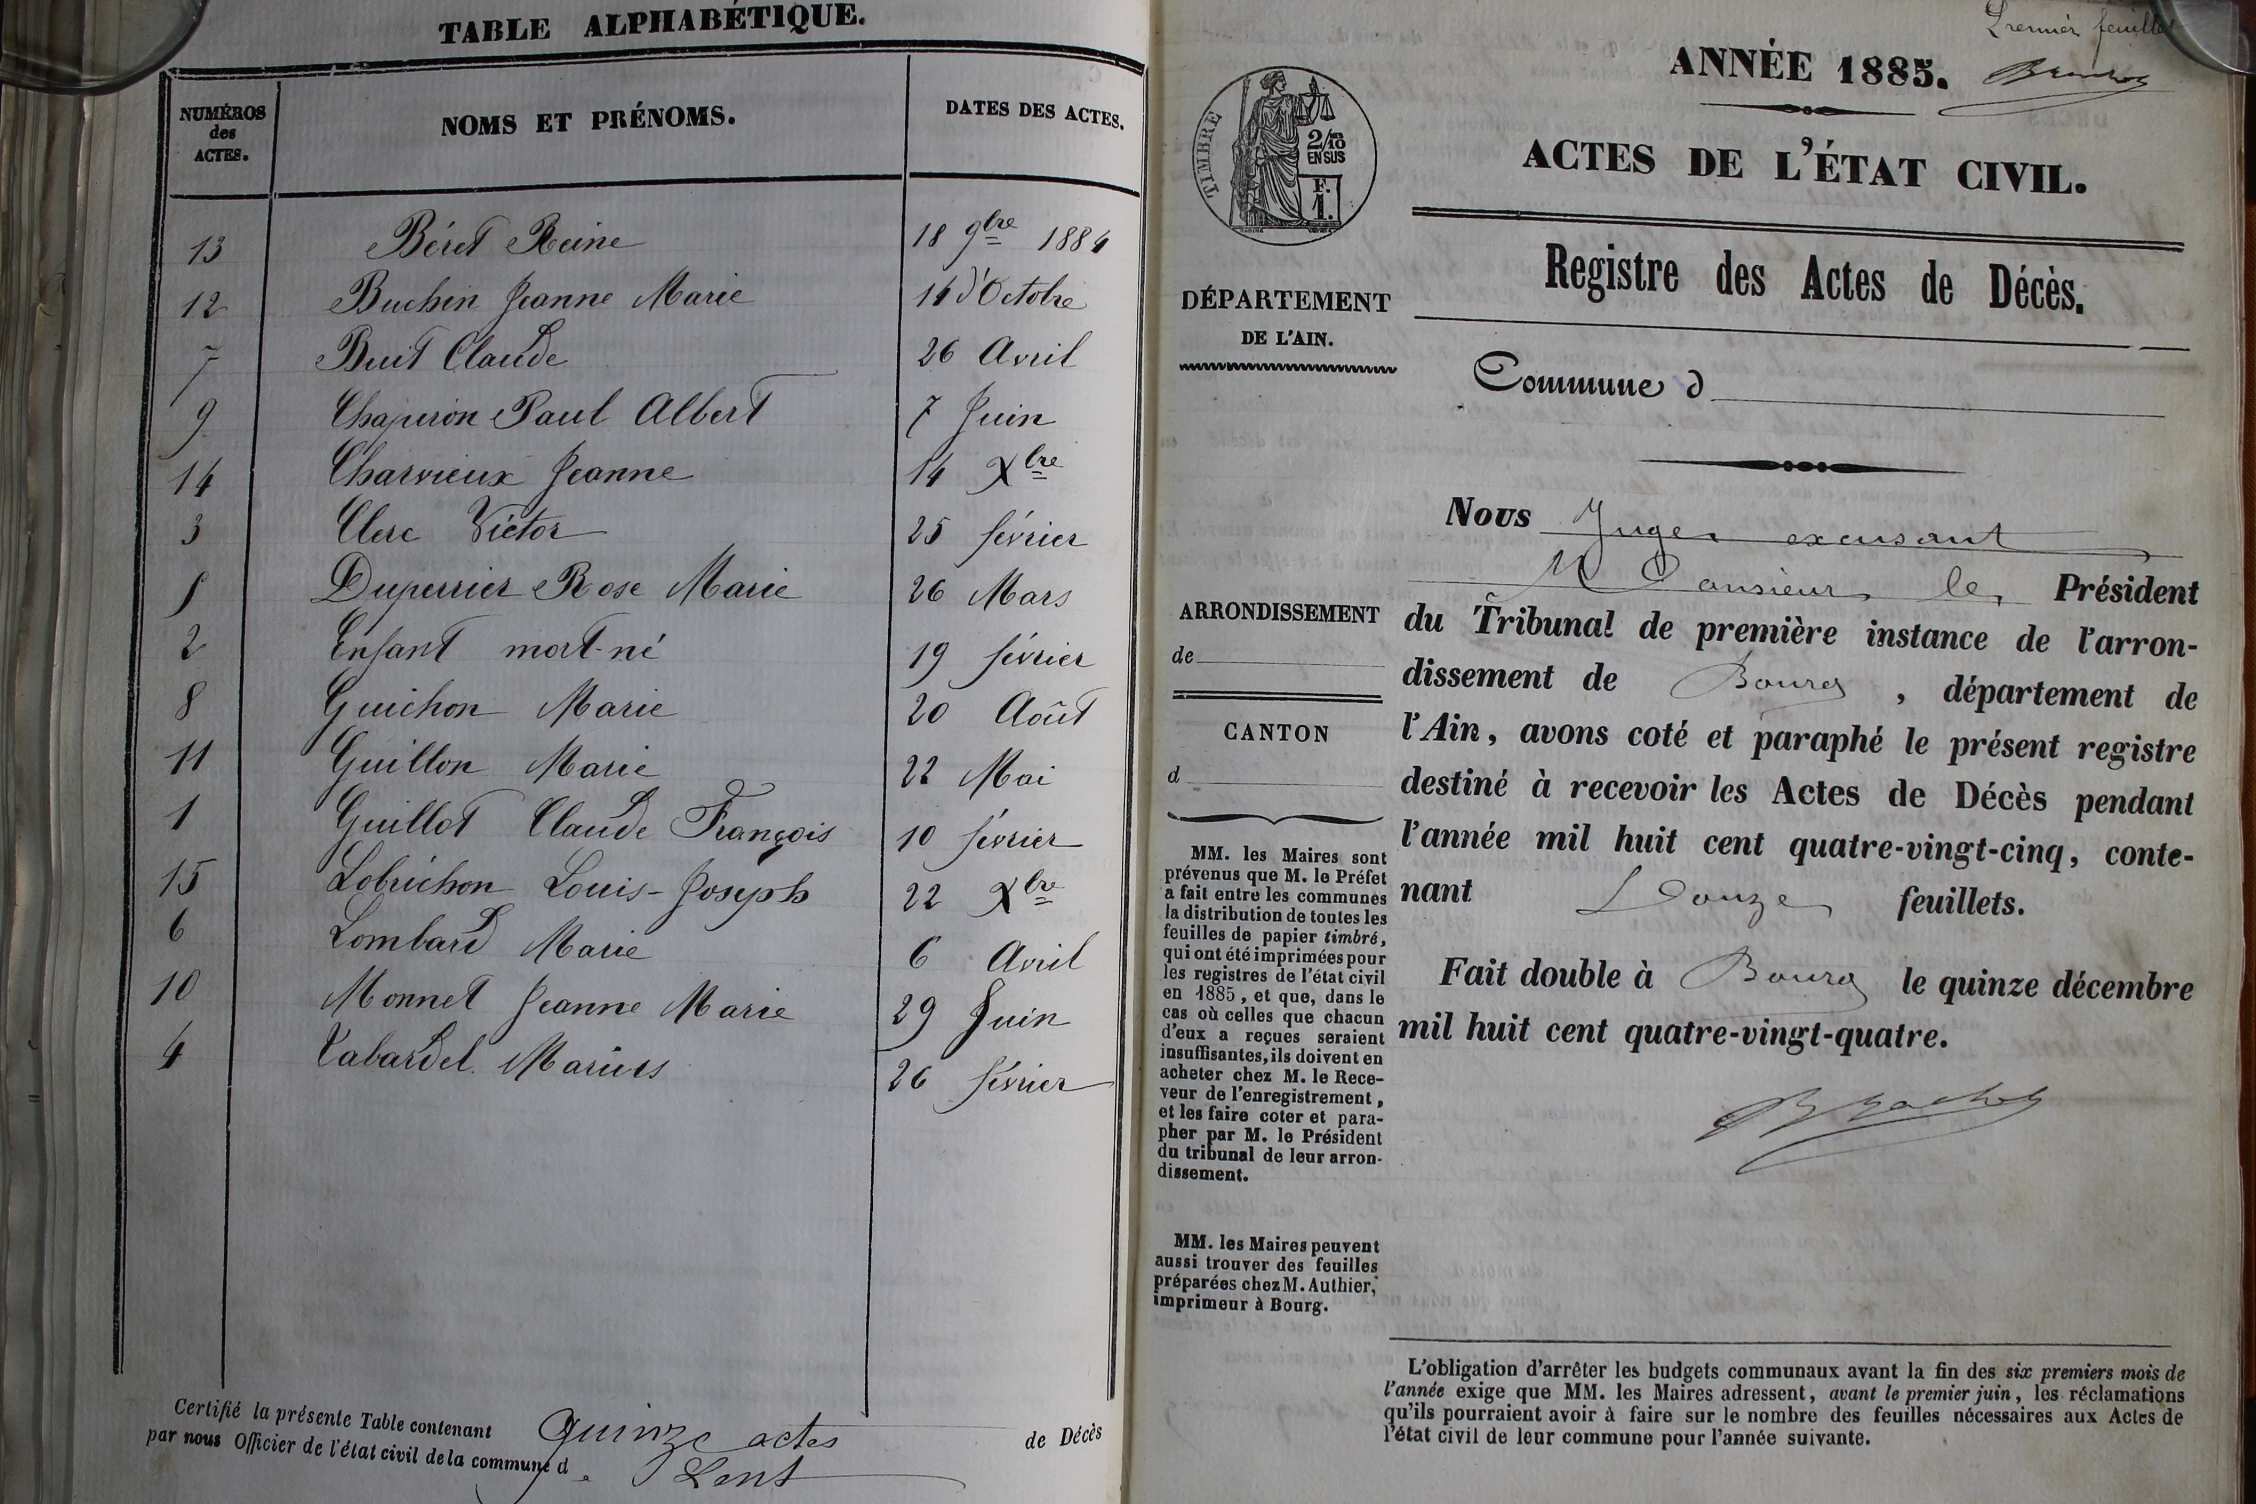 TABLE ALPHABÉTIQUE.
NUMÉROS
des
ACTES.
NOMS ET PRÉNOMS.
DATES DES ACTES.
13 Béret Reine 18 9bre 1884
12 Buchin Jeanne Marie 14 d'Octobre
7 Buit Claude 26 Avril
9 Chapuron Paul Albert 7 Juin
14 Charvieux Jeanne 14 Xbre
3 Clerc Victor 25 février
5 Duperrier Rose Marie 26 Mars
2 Enfant mort-né 19 février
8 Guichon Marie 20 Août
11 Guillon Marie 22 Mai
1 Guillot Claude François 10 février
15 Lobrichon Louis-Joseph 22 Xbre
6 Lombard Marie 6 Avril
10 Monnet Jeanne Marie 29 Juin
4 Tabardel Marius 26 février
Certifié la présente Table contenant Quinze actes de Décès
par nous Officier de l'état civil de la commune de Lent
Premier feuillet
ANNÉE 1885.
ACTES DE L'ÉTAT CIVIL.
TIMBRE
2/10
EN SUS
F.
1.
Registre des Actes de Décès.
DÉPARTEMENT
DE L'AIN.
Commune d
ARRONDISSEMENT
de
CANTON
d
MM. les Maires sont
prévenus que M. le Préfet
a fait entre les communes
la distribution de toutes les
feuilles de papier timbré,
qui ont été imprimées pour
les registres de l'état civil
en 1885, et que, dans le
cas où celles que chacun
d'eux a reçues seraient
insuffisantes, ils doivent en
acheter chez M. le Rece-
veur de l'enregistrement,
et les faire coter et para-
pher par M. le Président
du tribunal de leur arron-
dissement.
MM. les Maires peuvent
aussi trouver des feuilles
préparées chez M. Authier,
imprimeur à Bourg.
Nous Juge excusant
Monsieur le Président
du Tribunal de première instance de l'arron-
dissement de Bourg, département de
l'Ain, avons coté et paraphé le présent registre
destiné à recevoir les Actes de Décès pendant
l'année mil huit cent quatre-vingt-cinq, conte-
nant Douze feuillets.
Fait double à Bourg le quinze décembre
mil huit cent quatre-vingt-quatre.
L'obligation d'arrêter les budgets communaux avant la fin des six premiers mois de
l'année exige que MM. les Maires adressent, avant le premier juin, les réclamations
qu'ils pourraient avoir à faire sur le nombre des feuilles nécessaires aux Actes de
l'état civil de leur commune pour l'année suivante.